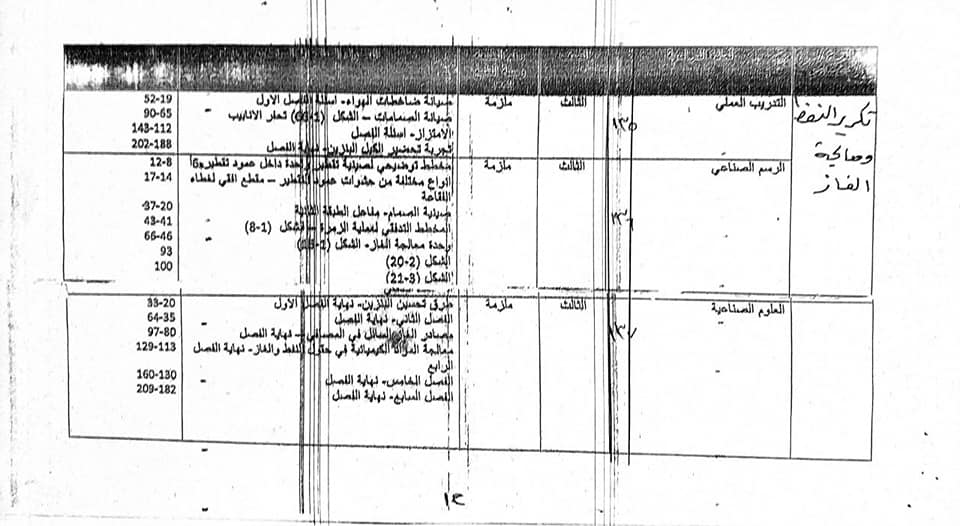 تكرير النفط
ومعالجة
الغاز
التدريب العملي
١٣٥
الثالث
ملزمة
صيانة ضاغطات الهواء- اسئلة الفصل الاول
52-19
صيانة الصمامات – الشكل
تحلر الانابيب
90-65
الامتزاز- اسئلة الفصل
143-112
تجربة تحضير الكيل البنزين- نهاية الفصل
202-188
الرسم الصناعي
١٣٦
الثالث
ملزمة
مخطط توضيحي لصينية تقطير واحدة داخل عمود تقطير
12-8
انواع مختلفة من حشوات عمود التقطير – مقطع افقي لغطاء
17-14
الفقاعة
صينية الصمام- مفاعل الطبقة الثانية
37-20
المخطط التدفقي لعملية الزمرة – شكل (1-8)
43-41
وحدة معالجة الغاز- الشكل
66-46
الشكل (2-20)
93
الشكل (3-21)
100
العلوم الصناعية
١٣٧
الثالث
ملزمة
طرق تحسين البنزين- نهاية الفصل الاول
33-20
الفصل الثاني- نهاية الفصل
64-35
مصادر الغاز السائل في المصافي – نهاية الفصل
97-80
معالجة المواد الكيميائية في حقول النفط والغاز- نهاية الفصل
129-113
الرابع
الفصل الخامس- نهاية الفصل
160-130
الفصل السابع- نهاية الفصل
209-182
١٤